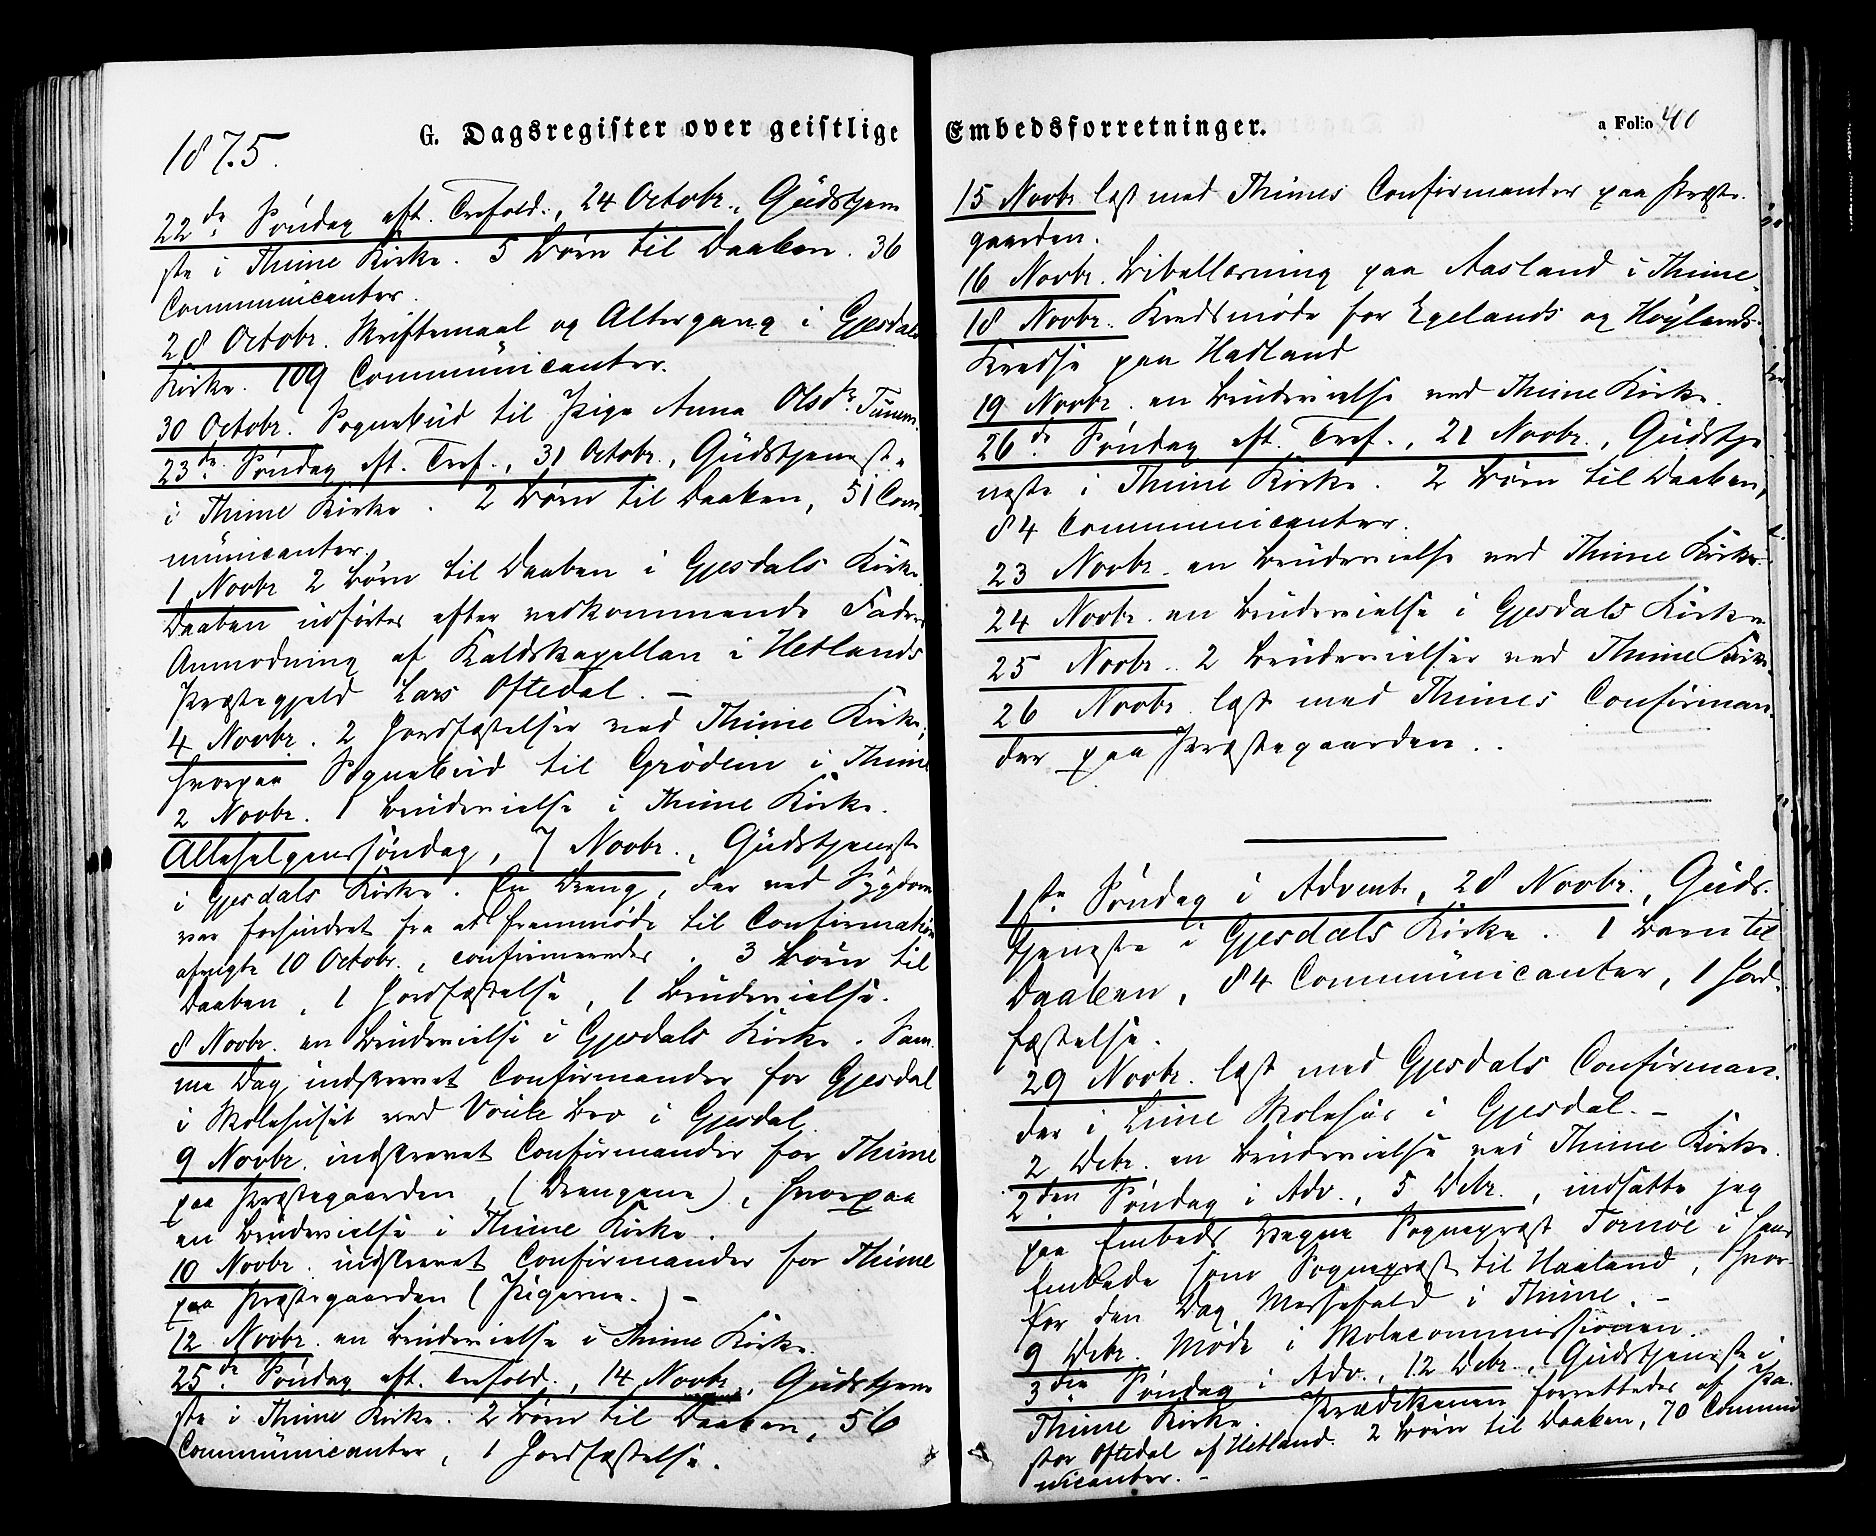 G. Dagsregister over geistlige
1875.
22de Søndag eft. Trefold., 24 Octobr., Gudstjene
ste i Thime Kirke. 5 Børn til Daaben. 36
Communicanter.
28 Octobr. Skriftemaal og Altergang i Gjesdals
Kirke. 109 Communicanter.
30 Octobr. Sognebud til Pige Anna Olsdr.
23de Søndag eft. Tref., 31 Octobr., Gudstjeneste
i Thime Kirke. 2 Børn til Daaben, 51 Com-
municanter.
1 Novbr 2 Børn til Daaben i Gjesdals Kirke.
Daaben udførtes efter vedkommende Fædres
Anmodning af Kaldskapellan i Hetlands
Præstegjeld Lars Oftedal. –
4 Novbr. 2 Jordfæstelser ved Thime Kirke,
hvorpaa Sognebud til Grødem i Thime
2 Novbr. 1 Brudevielse i Thime Kirke.
Allehelgenssøndag, 7 Novbr., Gudstjeneste
i Gjesdals Kirke. En Dreng, der ved Sygdom
var forhindret fra at fremmøde til Confirmation
afvigte 10 Octobr., confirmeredes. 3 Børn til
Daaben, 1 Jordfæstelse, 1 Brudevielse.
8 Novbr. en Brudevielse i Gjesdals Kirke. Sam-
me Dag indskrevet Confirmander for Gjesdal
i Skolehuset ved Bro i Gjesdal.
9 Novbr. indskrevet Confirmander for Thime
paa Præstegaarden, (Drengene), hvorpaa
en Brudevielse i Thime Kirke.
10 Novbr. indskrevet Confirmander for Thime
paa Præstegaarden (Pigerne.) –
12 Novbr. en Brudevielse i Thime Kirke.
25de Søndag eft. Trefold., 14 Novbr., Gudstjene
ste i Thime Kirke. 2 Børn til Daaben, 56
Communicanter, 1 Jordfæstelse.
Embedsforretninger.
a Folio 40
15 Novbr læst med Thimes Confirmander paa Præste-
gaarden.
16 Novbr. Bibellæsning paa Aasland i Thime.
18 Novbr. Kredsmøde for Egelands og Høylands
Kredse paa Hadland
19 Novbr. en Brudevielse ved Thime Kirke.
26de Søndag eft. Tref., 21 Novbr., Gudstje
neste i Thime Kirke. 2 Børn til Daaben,
84 Communicanter.
23 Novbr. en Brudevielse ved Thime Kirke.
24 Novbr. en Brudevielse i Gjesdals Kirke
25 Novbr. 2 Brudevielser ved Thime Kirke.
26 Novbr læst med Thimes Confirman-
der paa Præstegaarden.
1ste Søndag i Advent, 28 Novbr., Guds-
tjeneste i Gjesdals Kirke. 1 Barn til
Daaben, 84 Communicanter, 1 Jord-
fæstelse.
29 Novbr. læst med Gjesdals Confirman-
der i Lime Skolehus i Gjesdal. –
2 Debr. en Brudevielse ved Thime Kirke.
2den Søndag i Adv., 5 Debr., indsatte jeg
paa Embeds Vegne Sognepræst Tornøe i hans
Embede som Sognepræst til Haaland, hvor-
for den Dag Messefald i Thime. –
9 Debr. Møde i Skolecommissionen.
3die Søndag i Adv., 12 Debr., Gudstjeneste i
Thime Kirke. Prædikenen forrettedes af Pa-
stor Oftedal af Hetland. 2 Børn til Daaben, 70 Commu
nicanter. –